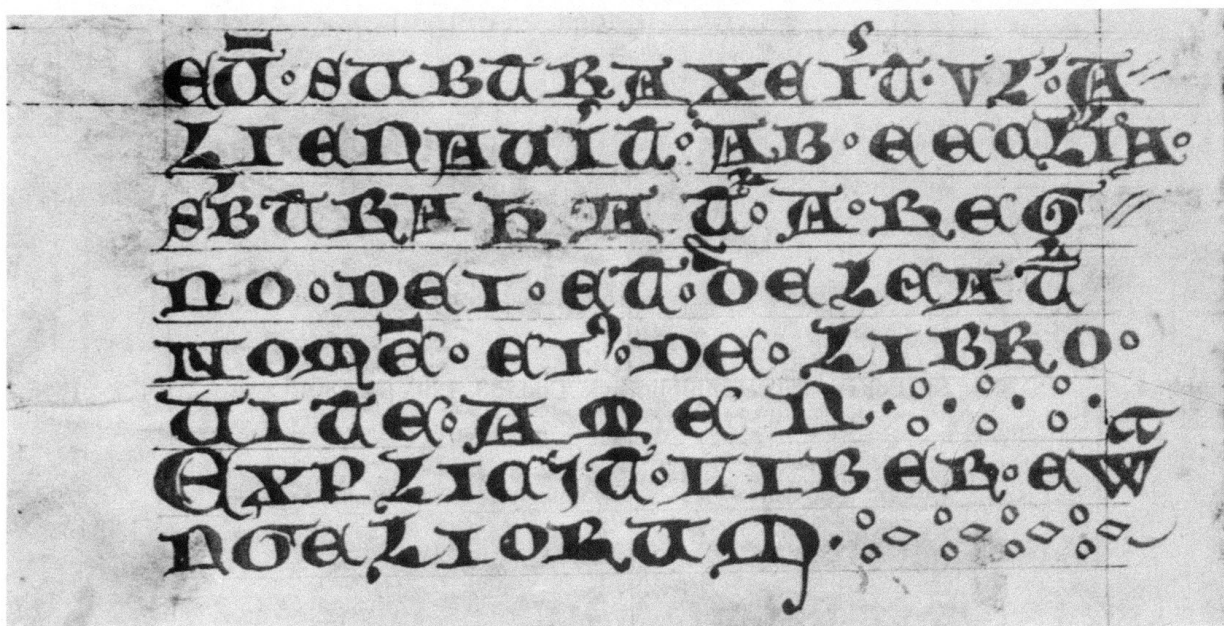 EŪ·SUBTRAXE͛IT·VL̕·A//
LIENAU͛IT·AB·ECCL̕IA·
S̕BTRAHAT᷑·A·REG//
NO·DEI·ET·DELEAT᷑
NOMĒ·EIꝰ·DE·LIBRO·
UITE·AMEN·
EXPLICIT·LIBER·EWA
NGELIORUM·